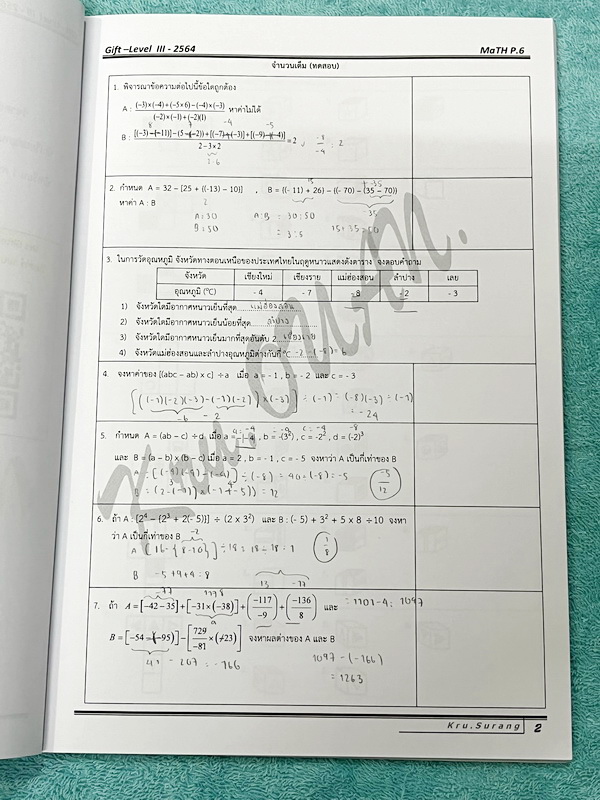 Gift –Level III - 2564 MaTH P.6
จำนวนเต็ม (ทดสอบ)
1. พิจารณาข้อความต่อไปนี้ข้อใดถูกต้อง
A : (−3)×(−4)+(−5×6)−(−4)×(−3) / (−2)×(−1)+(−2)(1) หาค่าไม่ได้
8 7 -4 -5
B : [(−3)−(−11)]−(5−(−2))+[(−7)−(−3)]+[(−9)−(−4)] / 2−3×2 = 2 -8/-4 = 2
2. กำหนด A = 32 – [25 + {(-13) – 10}] , B = {(- 11) + 26} – {(- 70) – (35 – 70)}
หาค่า A : B
A = 30 A:B = 30:50
B = 50 = 3:5 15+35 = 50
3. ในการวัดอุณหภูมิ จังหวัดทางตอนเหนือของประเทศไทยในฤดูหนาวแสดงดังตาราง จงตอบคำถาม
จังหวัด เชียงใหม่ เชียงราย แม่ฮ่องสอน ลำปาง เลย
อุณหภูมิ (°C) - 4 - 7 - 8 - 2 - 3
1) จังหวัดใดมีอากาศหนาวเย็นที่สุด แม่ฮ่องสอน
2) จังหวัดใดมีอากาศหนาวเย็นน้อยที่สุด ลำปาง
3) จังหวัดใดมีอากาศหนาวเย็นมากที่สุดอันดับ 2 เชียงราย
4) จังหวัดแม่ฮ่องสอนและลำปางอุณหภูมิต่างกันกี่ °C -2 - (-8) = 6
4. จงหาค่าของ [(abc – ab) × c] ÷ a เมื่อ a = - 1 , b = - 2 และ c = - 3
[((-1)(-2)(-3) - (-1)(-2)) × (-3)] ÷ (-1) = (-8)(-3) ÷ (-1)
-6 - 2 = -24
5. กำหนด A = (ab – c) ÷ d เมื่อ a = – |– 4| , b = -(3²) , c = -2² , d = (-2)³
และ B = (a – b) × (b – c) เมื่อ a = 2 , b = - 1 , c = - 5 จงหาว่า A เป็นกี่เท่าของ B
-5/12
6. ถ้า A : {2⁴ – {2³ + 2(- 5)}] ÷ (2 x 3²) และ B : (- 5) + 3² + 5 x 8 ÷ 10 จงหา
ว่า A เป็นกี่เท่าของ B
A [16 - {8-10}] ÷ 18 = 18 ÷ 18 = 1 1/8
B -5+9+4 = 8
13 -17
7. ถ้า A = [−42−35]+[−31×(−38)]+(−117/−9)+(−136/8) และ = 1101-4 = 1097
B = [−54−(−95)]−[729/−81×(−23)] จงหาผลต่างของ A และ B
41 - 207 = -166 1097 - (-166)
= 1263
Kru.Surang 2
Kru OUM.